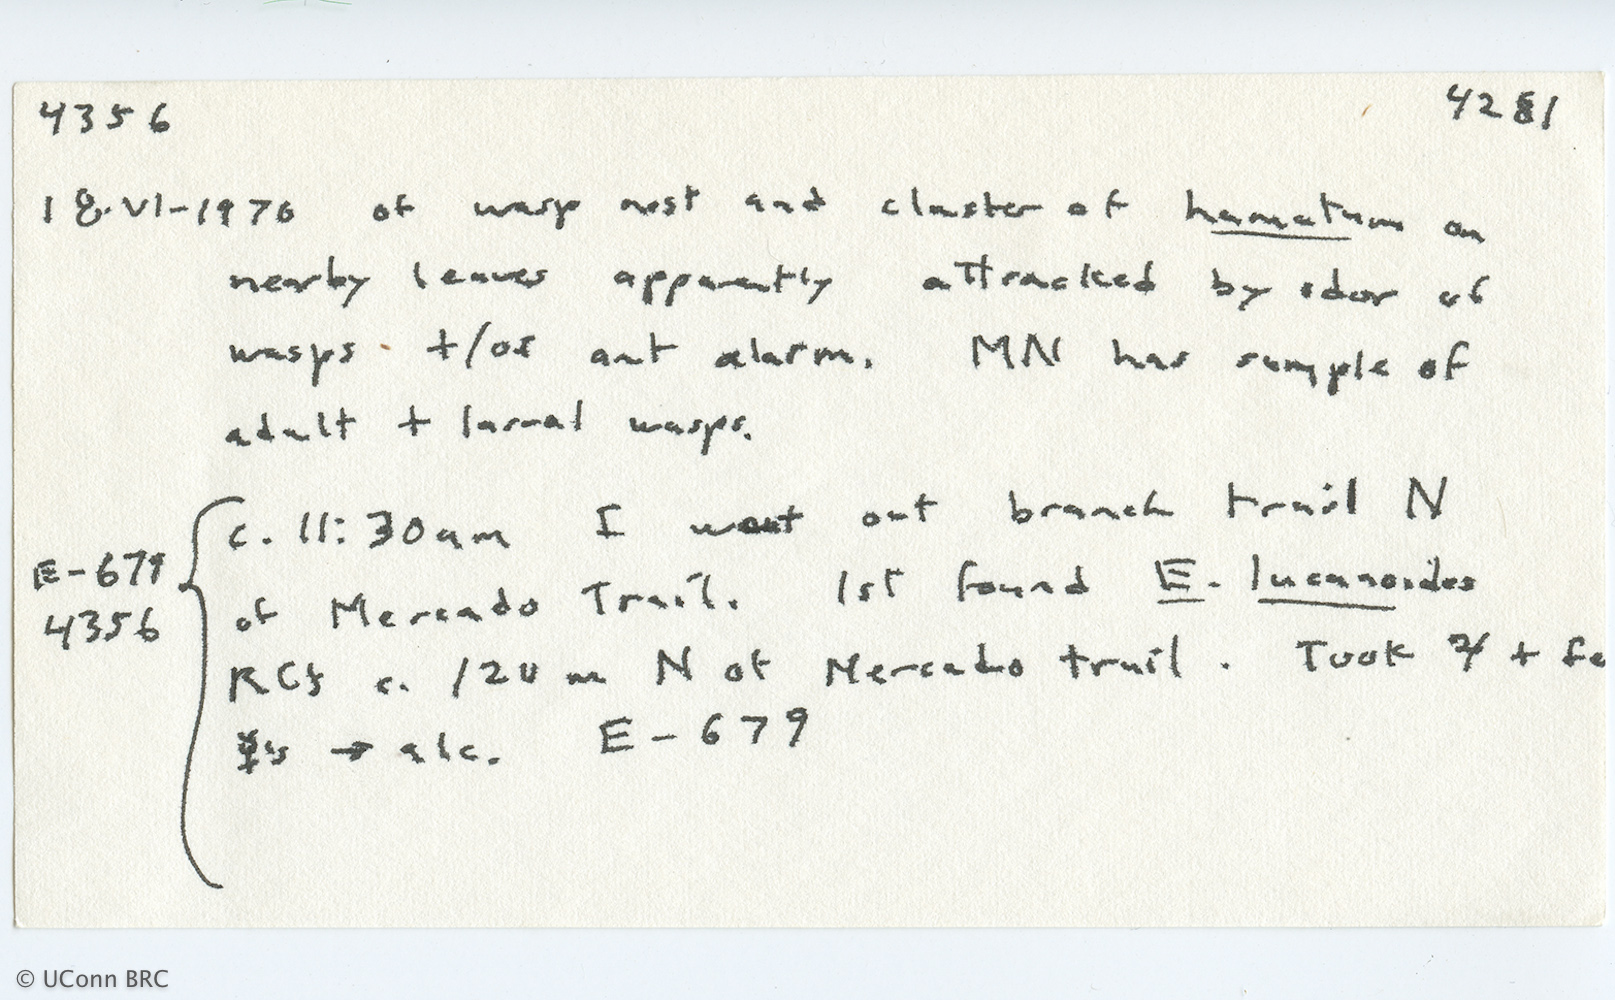 4356 4281
18.VI-1976 of wasp nest and cluster of hamatum on
nearby leaves apparently attracked by odor of
wasps +/or ant alarm. MN has sample of
adult + larval wasps.
c. 11:30am I went out branch trail N
E-679
4356
of Mercado Trail. 1st found E. lucanoides
RCs c. 120 m N of Mercado trail. Took + fe
→ alc. E-679
© UConn BRC